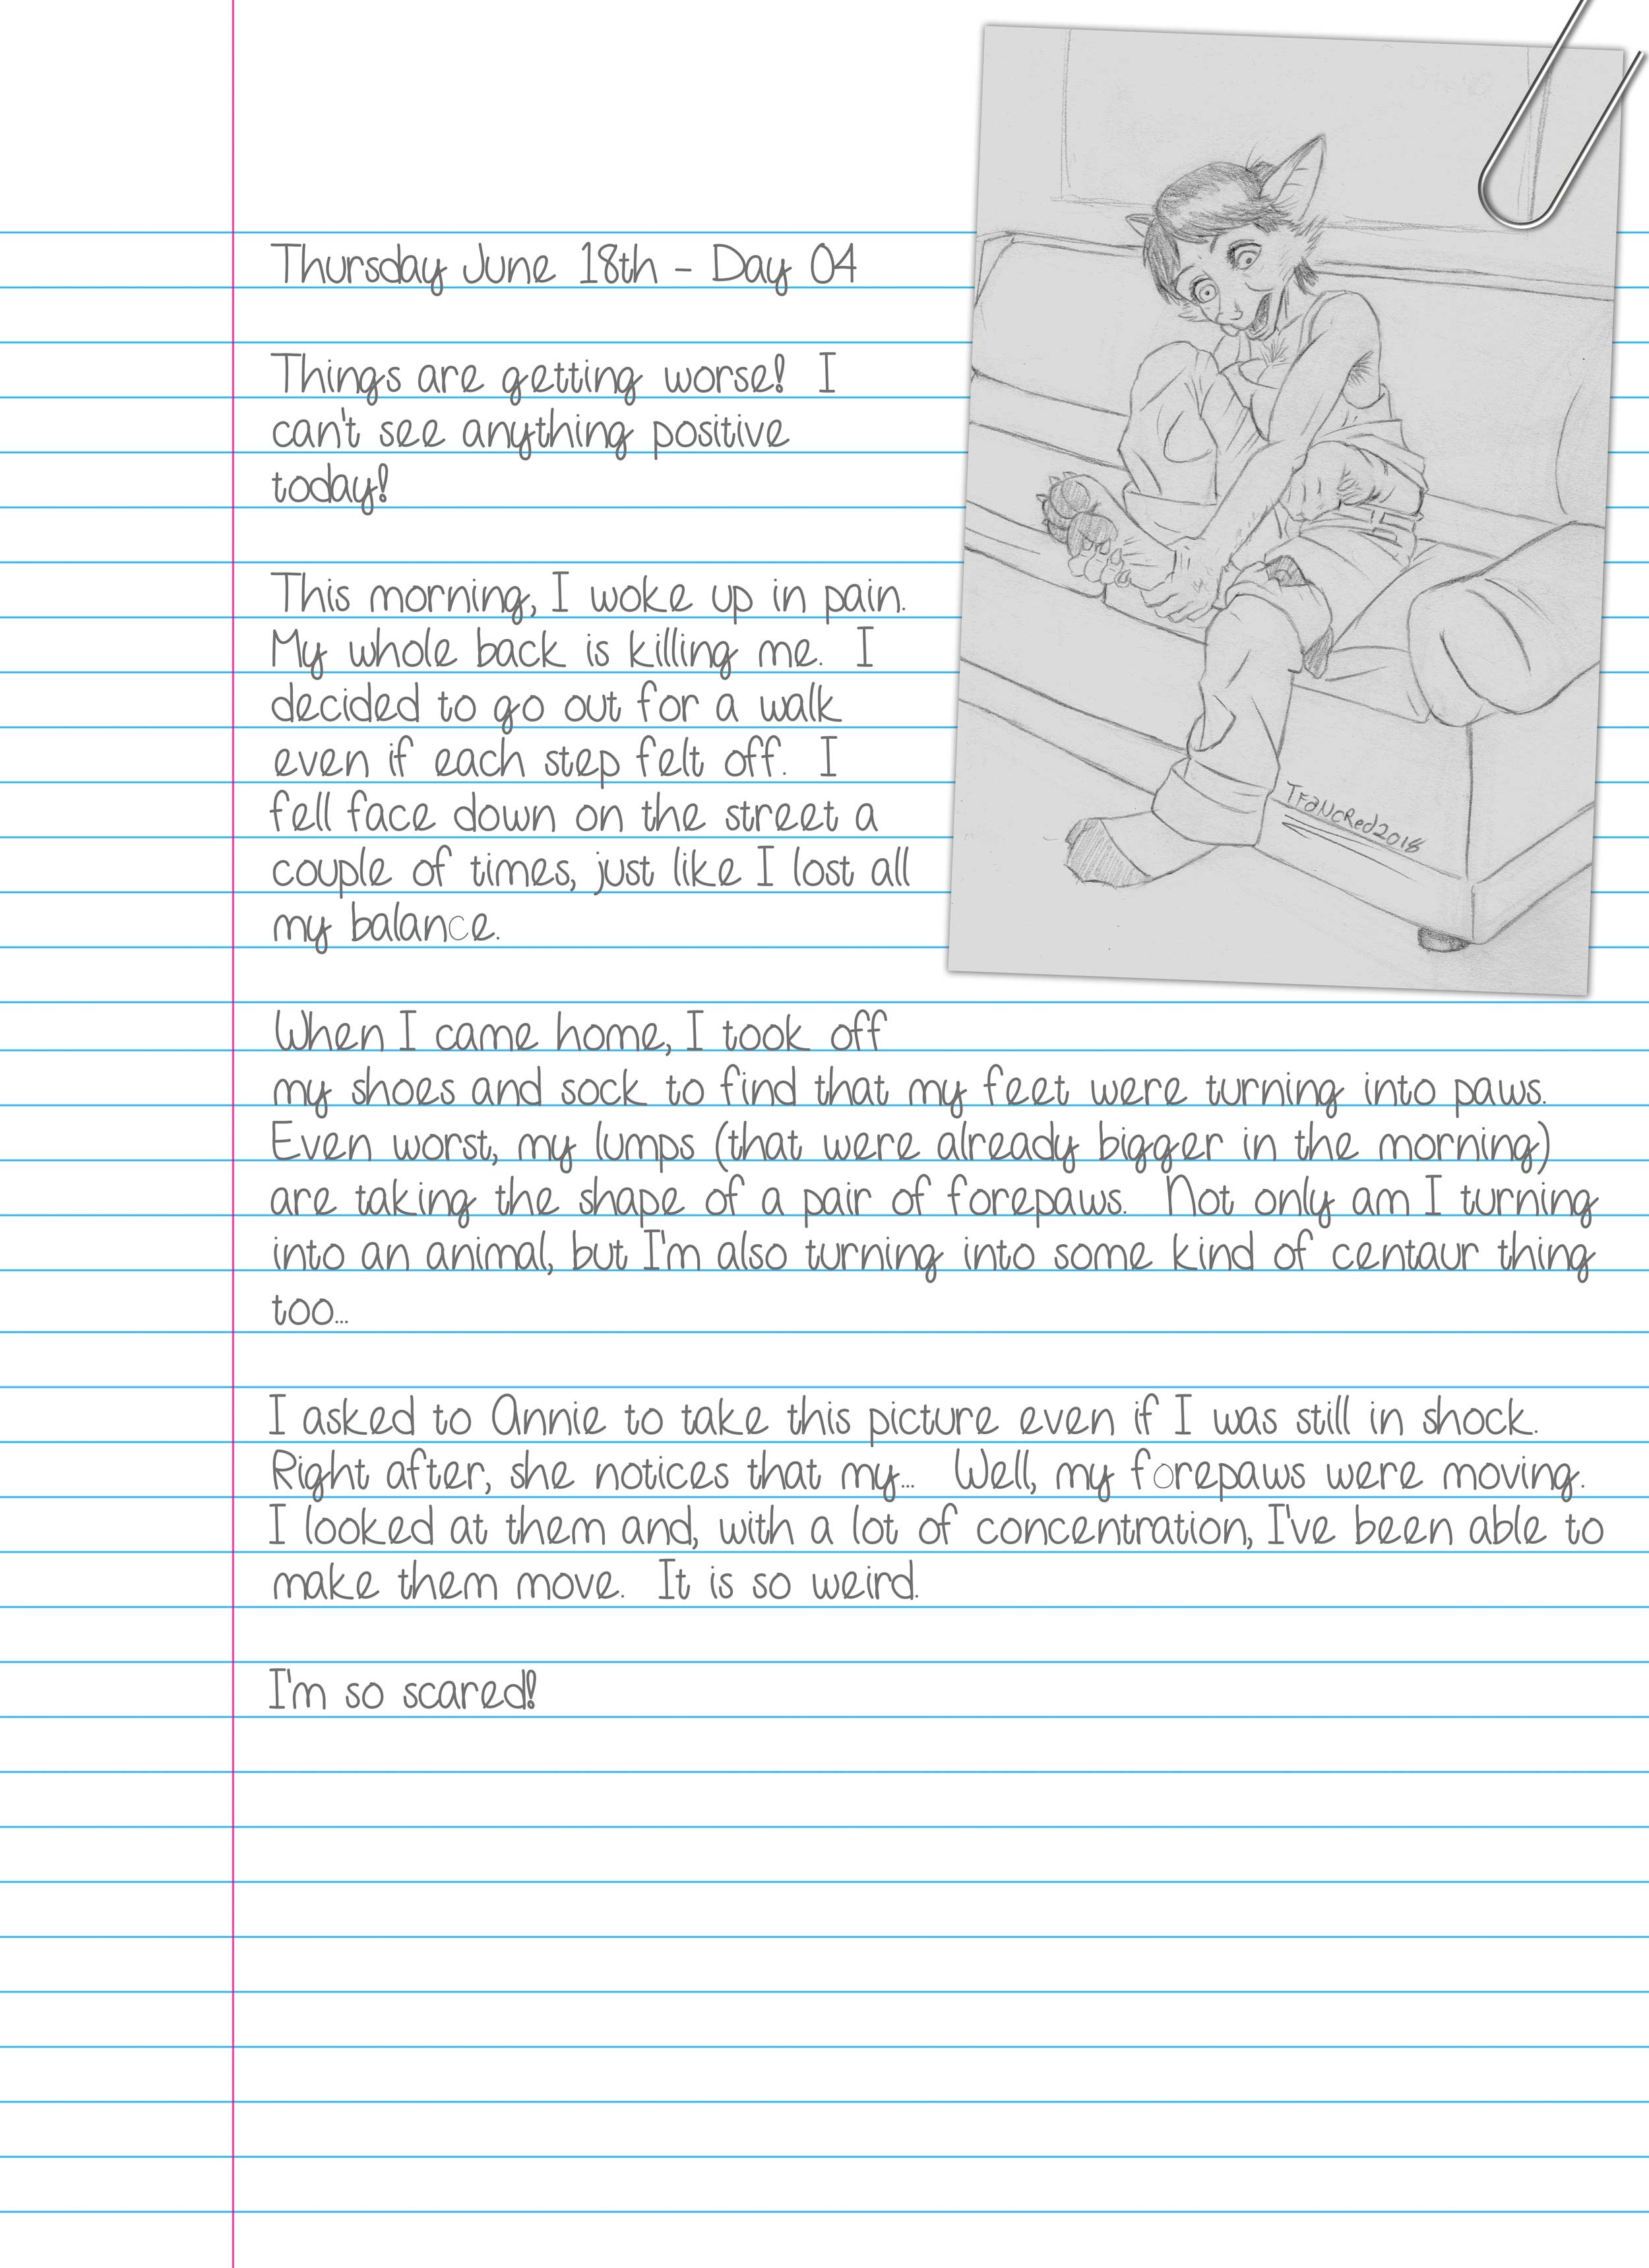 Thursday June 18th - Day 04
Things are getting worse! I
can't see anything positive
today!
This morning, I woke up in pain.
My whole back is killing me. I
decided to go out for a walk
even if each step felt off. I
fell face down on the street a
couple of times, just like I lost all
my balance.
When I came home, I took off
my shoes and sock to find that my feet were turning into paws.
Even worst, my lumps (that were already bigger in the morning)
are taking the shape of a pair of forepaws. Not only am I turning
into an animal, but I'm also turning into some kind of centaur thing
too...
I asked to Annie to take this picture even if I was still in shock.
Right after, she notices that my... Well, my forepaws were moving.
I looked at them and, with a lot of concentration, I've been able to
make them move. It is so weird.
I'm so scared!
TFaNcRed2018